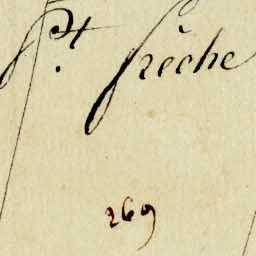 pt. frèche
269